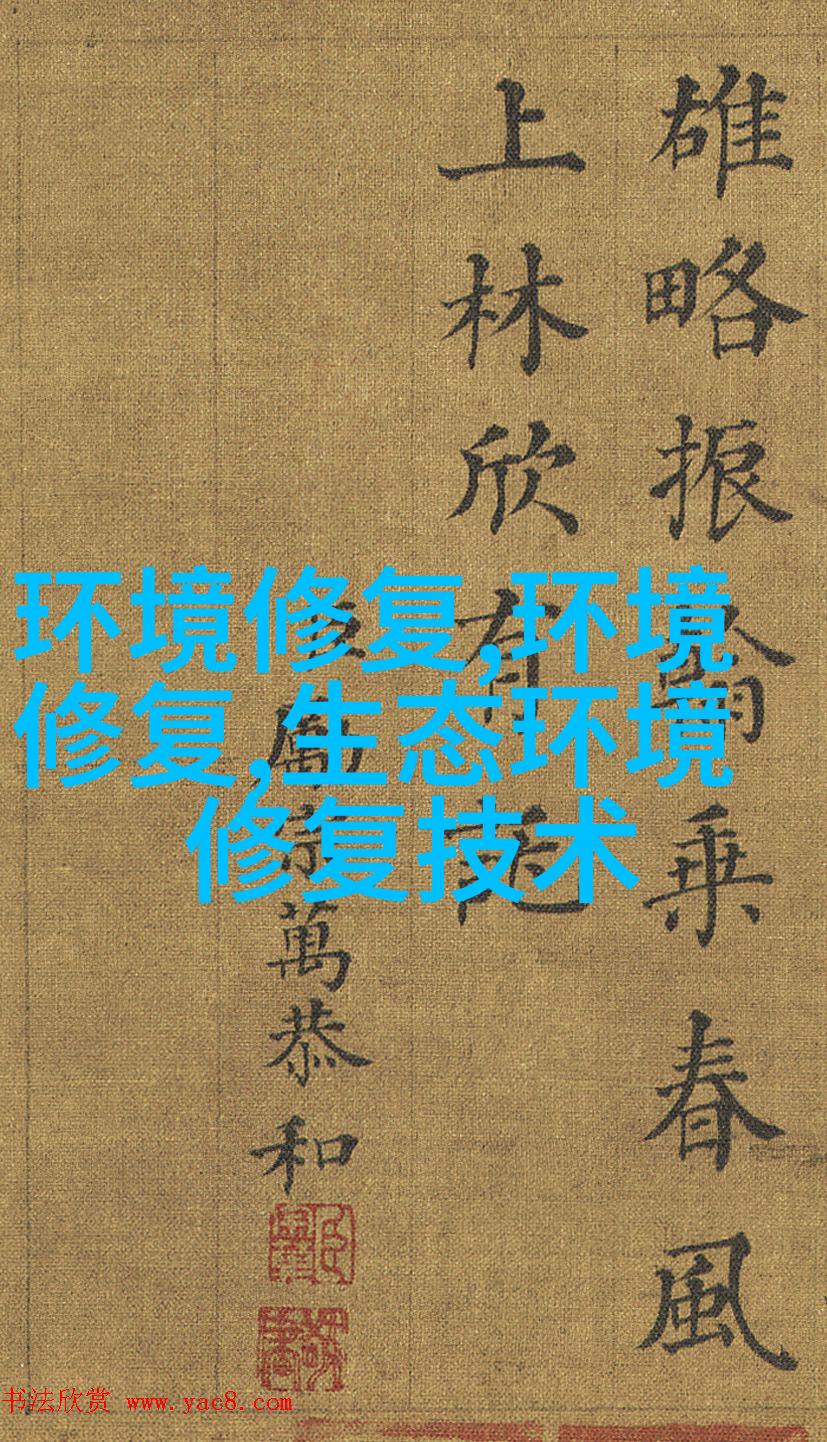 雄略振乘春風
上林欣有
宗萬恭和
环境修复,环境
修复,生态环境
修复技术
书法欣赏 www.yac8.com